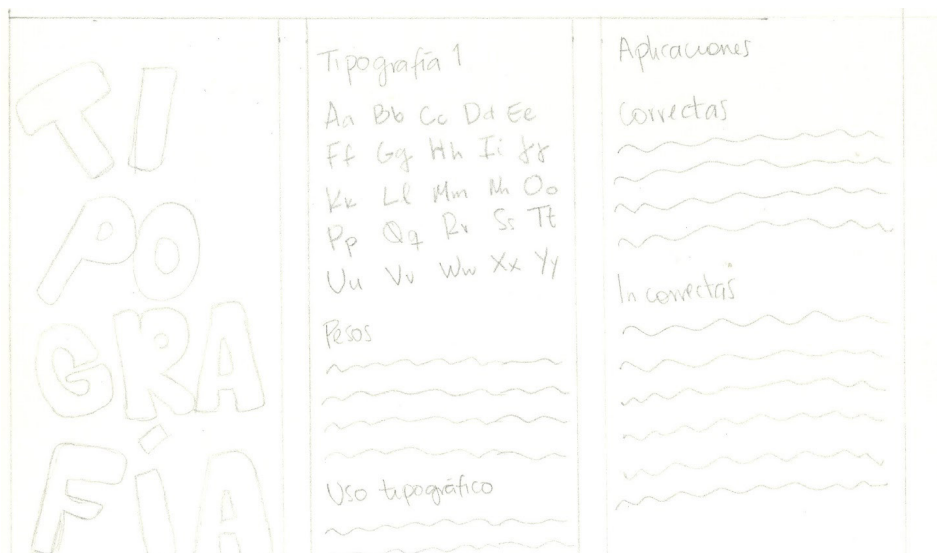 TI
PO
GRA
FÍA
Tipografía 1
Aa Bb Cc Dd Ee
Ff Gg Hh Ii Jj
Kk Ll Mm Nn Oo
Pp Qq Rr Ss Tt
Uu Vv Ww Xx Yy
Pesos
Uso tipográfico
Aplicaciones
Correctas
Incorrectas